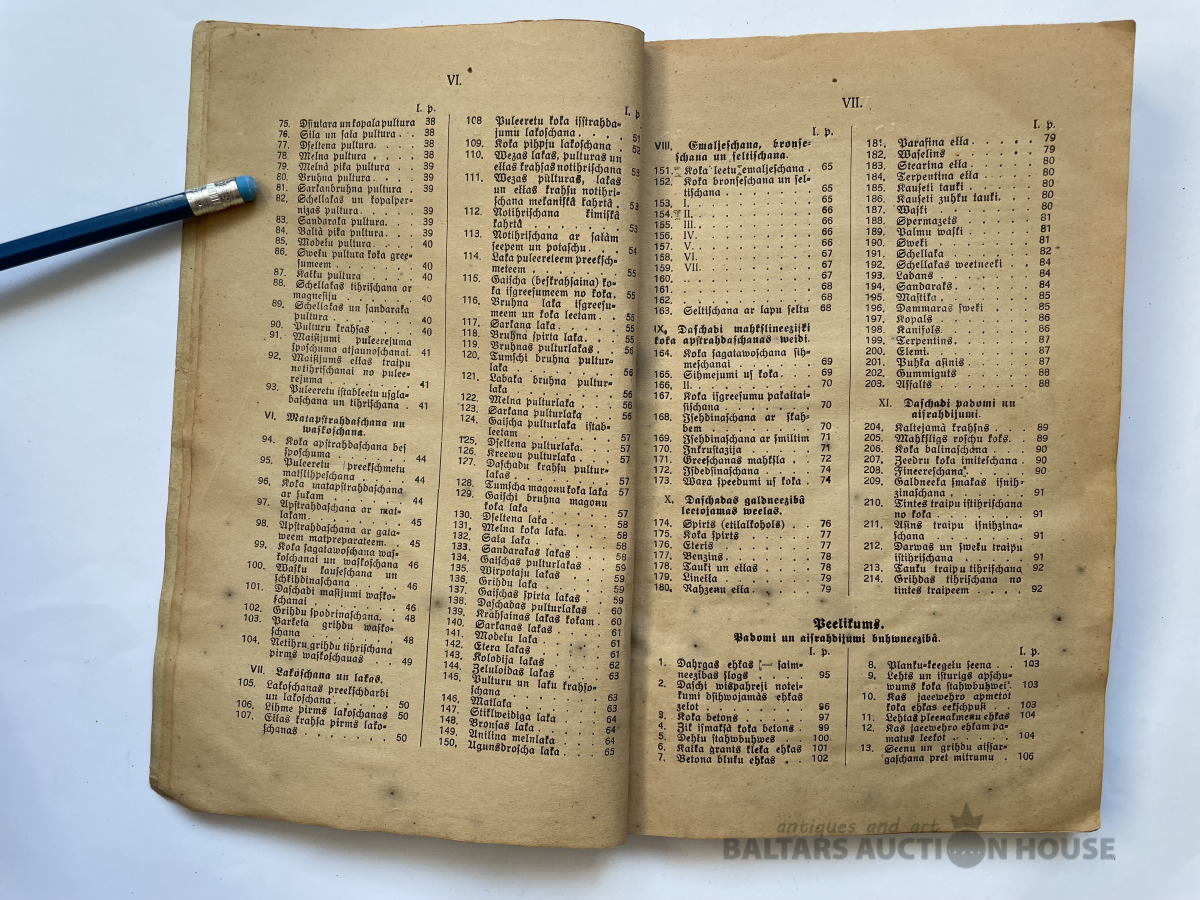 VI.
l. p.
75. Dsiutara un kopala pultura 38
76. Sila un sala pultura . . 38
77. Dseltena pultura. . . . . 38
78. Melna pultura . . . . . 38
79. Melnâ pika pultura . . . 39
80. Bruhna pultura . . . . . 39
81. Sarkanbruhna pultura . 39
82. Schellakas un kopalper-
nizas pultura. . . . . 39
83. Sandaraka pultura. . . . 39
84. Baltâ pika pultura . . . 39
85. Modeku pultura . . . . 40
86. Sweku pultura koka gree-
sumeem . . . . . 40
87. Kakku pultura . . . . . 40
88. Schellakas tihrischana ar
magnesiju . . . . . 40
89. Schellakas un sandaraka
pultura . . . . . 40
90. Pulturu krahsas . . . . 40
91. Maisijumi puleerejuma
sposchuma atjaunoschanai. 41
92. Maisijums ellas traipu
notihrischanai no pulee-
rejuma . . . . . 41
93. Puleeretu istableetu usgla-
baschana un tihrischana . 41
VI. Matapstrahdaschana un
waskoschana.
94. Koka apstrahdaschana bes
sposchuma . . . . . 44
95. Puleeretu preekschmetu
matslihpeschana . . . . 44
96. Koka matapstrahdaschana
ar sukam . . . . . 44
97. Apstrahdaschana ar mat-
lakam. . . . . 45
98. Apstrahdaschana ar gata-
weem matpreparateem. . 45
99. Koka sagatawoschana was-
koschanai un waskoschana 46
100. Wasku kauseschana un
schkihdinaschana . . . 46
101. Daschadi masijumi wasko-
schanai . . . . . 46
102. Grihdu spodrinaschana. . 48
103. Parketa grihdu wasko-
schana . . . . . 48
104. Netihru grihdu tihrischana
pirms waskoschanas . . 49
VII. Lakoschana un lakas.
105. Lakoschanas preekschdarbi
un lakoschana. . . . . 50
106. Lihme pirms lakoschanas 50
107. Ellas krahsa pirms lako-
schanas . . . . . 50
l. p
108 Puleeretu koka isstrahda-
jumu lakoschana . . . . 51
109. Koka pihpju lakoschana . 52
110. Wezas lakas, pulturas un
ellas krahsas notihrischana 53
111. Wezas pulturas, lakas
un ellas krahsu notihri-
schana mekaniskâ kahrtâ . 53
112. Notihrischana kimiskâ
kahrtâ . . . . . 53
113. Notihrischana ar satâm
seepem un potaschu. . . 54
114. Laka puleereteem preeksch-
meteem . . . . . 55
115. Gaischa (beskrahsaina) ko-
ka isgreesumeem no koka. 55
116. Bruhna laka isgreesu-
meem un koka leetam. . 55
117. Sarkana laka. . . . . 55
118. Bruhna spirta laka. . . 55
119. Bruhnas pulturlakas. . . 56
120. Tumschi bruhna pultur-
laka . . . . . 56
121. Labaka bruhna pultur-
laka . . . . . 56
122. Melna pulturlaka . . . 56
123. Sarkana pulturlaka . . . 56
124. Gaischa pulturlaka istab-
leetam . . . . . 57
125. Dseltena pulturlaka. . . 57
126. Kreewu pulturlaka. . . . 57
127. Daschadu krahsu pultur-
lakas . . . . . 57
128. Tumscha magonu koka laka 57
129. Gaischi bruhna magonu
koka laka . . . . . 57
130. Dseltena laka . . . . . 58
131. Melna koka laka. . . . 58
132. Sala laka . . . . . 58
133. Sandarakas lakas . . . 58
134. Gaischas pulturlakas . . 59
135. Wirpotaju lakas . . . . 59
136. Grihdu laka . . . . . 59
137. Gaischas spirta lakas . . 59
138. Daschadas pulturlakas . 60
139. Krahsainas lakas kokam. 60
140. Sarkanas lakas . . . . 61
141. Modeku laka . . . . . 61
142. Etera lakas . . . . . 61
143. Kolodija lakas . . . . 62
144. Zeluloidas lakas . . . . 63
145. Pulturu un laku krahso-
schana . . . . . 63
146. Matlaka . . . . . 63
147. Stiklweidiga laka . . . 64
148. Bronsas laka . . . . . 64
149. Anilina melnlaka . . . 64
150, Ugunsdroscha laka . . . 65
VII.
l. p.
VIII. Emaljeschana, bronse-
schana un seltischana.
151. Koka leetu emaljeschana . 65
152. Koka bronseschana un sel-
tischana . . . . . 65
153, I. . . . . . 65
154. II. . . . . . 66
155. III. . . . . . 66
156. IV. . . . . . 66
157. V. . . . . . 66
158. VI. . . . . . 67
159. VII. . . . . . 67
160. . . . . . 67
161. . . . . . 68
162. . . . . . 68
163. Seltischana ar lapu seltu 68
IX. Daschadi mahkslineeziski
koka apstrahdaschanas weidi.
164. Koka sagatawoschana sih-
meschanai . . . . . 69
165. Sihmejumi us koka. . . 69
166, II. . . . . . 70
167. Koka isgreesumu pakaltai-
sischana . . . . . 70
168. Isehdinaschana ar skah-
bem . . . . . 70
169. Isehdinaschana ar smiltim 71
170. Inkrustazija . . . . 71
171. Greeschanas mahksla . . 72
172. Isdedsinaschana . . . . 74
173. Wara speedumi us koka . 74
X. Daschadas galdneezibâ
leetojamas weelas.
174. Spirts (etilalkohols) . . 76
175. Koka spirts . . . . . 77
176. Eteris . . . . . 77
177. Benzins. . . . . 78
178. Tauki un ellas . . . . 78
179. Linella . . . . . 79
180. Nahzenu ella. . . . . 79
l. p.
181. Parafina ella . . . . . 79
182. Waselins . . . . . 79
183. Stearina ella . . . . . 80
184. Terpentina ella . . . . 80
185. Kauseti tauki . . . . . 80
186. Kauseti zuhku tauki. . . 80
187. Waski . . . . . 80
188. Spermazets . . . . . 81
189. Palmu waski . . . . . 81
190. Sweki . . . . . 81
191. Schellaka . . . . . 82
192. Schellakas weetneeki . . 84
193. Ladans . . . . . 84
194. Sandaraks . . . . . 84
195. Mastika . . . . . 85
196. Dammaras sweki . . . . 85
197. Kopals . . . . . 86
198. Kanifols. . . . . 86
199. Terpentins. . . . . 87
200. Elemi. . . . . 87
201. Puhka asinis . . . . . 87
202. Gummiguts . . . . . 88
203. Assalts . . . . . 88
XI. Daschadi padomi un
aisrahdijumi.
204. Kaltejamâ krahsns . . . 89
205. Mahksligs roschu koks. . 89
206. Koka balinaschana . . . 90
207. Zeedru koka imiteschana . 90
208. Fineereschana. . . . . 90
209. Galdneeka smakas isnih-
zinaschana . . . . . 91
210. Tintes traipu istihrischana
no koka . . . . . 91
211. Asins traipu isnihzina-
schana . . . . . 91
212. Darwas un sweku traipu
istihrischana . . . . . 91
213. Tauku traipu tihrischana 92
214. Grihdas tihrischana no
tintes traipeem . . . . 92
Peelikums.
Padomi un aisrahdijumi buhwneezibâ.
l. p.
1. Dahrgas ehkas — saim-
neezibas slogs . . . . . 95
2. Daschi wispahreji notei-
kumi dsihwojamâs ehkas
zelot . . . . . 96
3. Koka betons . . . . . 97
4. Zik ismaksâ koka betons . 99
5. Dehlu stahwbuhwes . . 100
6. Kalka grants kleka ehkas 101
7. Betona bluku ehkas . . 102
l. p.
8. Planku-keegelu seena . . 103
9. Lehts un isturigs apschu-
wums koka stahwbuhwei . 103
10. Kas jaeewehro apmetot
koka ehkas eekschpusi . 103
11. Lehtas pleenakmenu ehkas 104
12. Kas jaeewehro ehkam pa-
matus leekot . . . . 104
13. Seenu un grihdu aissar-
gaschana pret mitrumu . 106
antiques and art
BALTARS AUCTION HOUSE